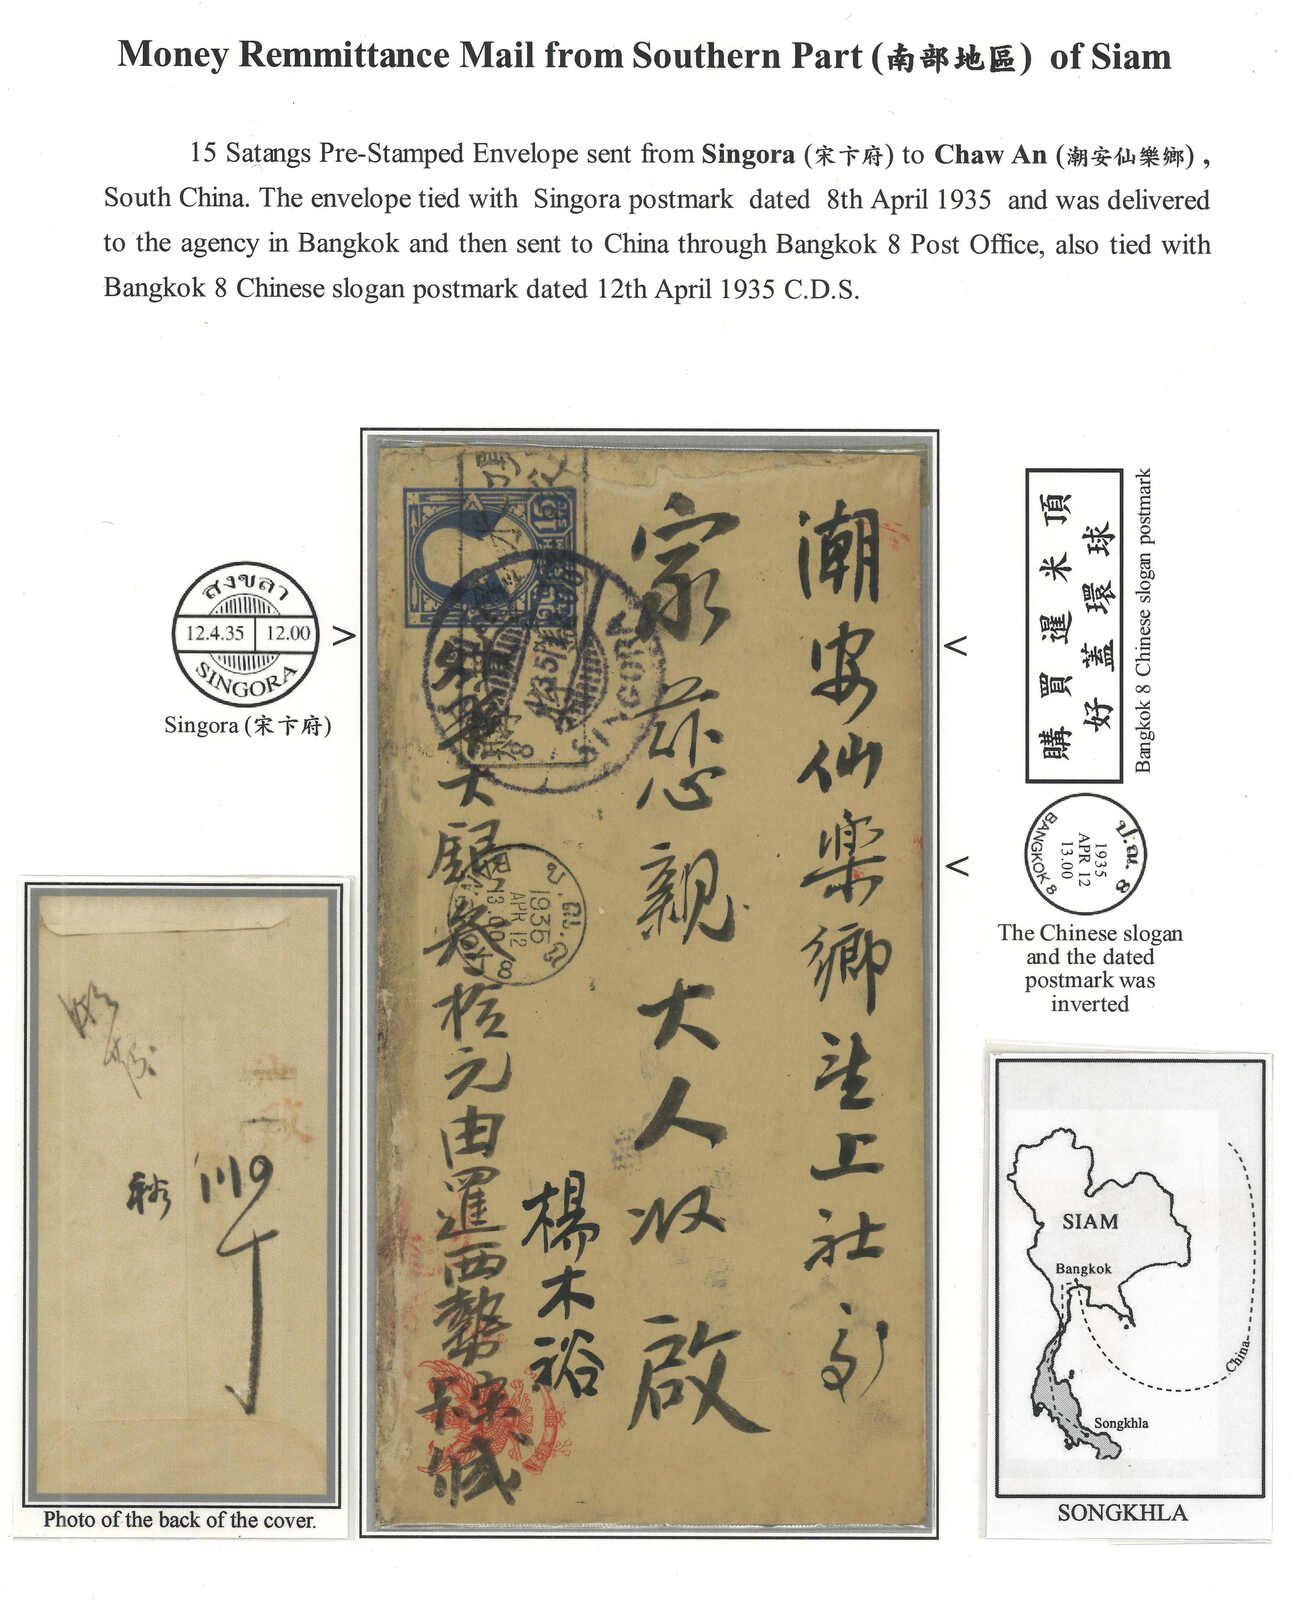 Money Remmittance Mail from Southern Part (南部地區) of Siam
15 Satangs Pre-Stamped Envelope sent from Singora (宋卞府) to Chaw An (潮安仙樂鄉) ,
South China. The envelope tied with Singora postmark dated 8th April 1935 and was delivered
to the agency in Bangkok and then sent to China through Bangkok 8 Post Office, also tied with
Bangkok 8 Chinese slogan postmark dated 12th April 1935 C.D.S.
สงขลา
12.4.35 12.00
SINGORA
Singora (宋卞府)
>
潮安仙樂鄉
上社
家慈親大人收啟
楊木裕
大銀叁拾元由暹西勢
15
SINGORA
ป.ณ.
1935
APR 12
13.00
8
<
<
購買暹米頂
好蓋環球
Bangkok 8 Chinese slogan postmark
ป.ณ. 8
1935
APR 12
13.00
BANGKOK 8
The Chinese slogan
and the dated
postmark was
inverted
Photo of the back of the cover.
SIAM
Bangkok
China
Songkhla
SONGKHLA